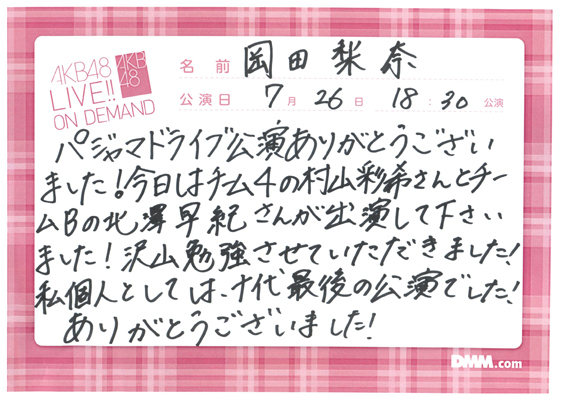 AKB48
LIVE!!
ON DEMAND
AKB
48
名前 岡田梨奈
公演日 7月26日 18:30公演
パジャマドライブ公演ありがとうござい
ました！今日はチーム4の村山彩希さんとチー
ムBの北澤早紀さんが出演して下さい
ました！沢山勉強させていただきました！
私個人としては、十代最後の公演でした！
ありがとうございました！
DMM.com